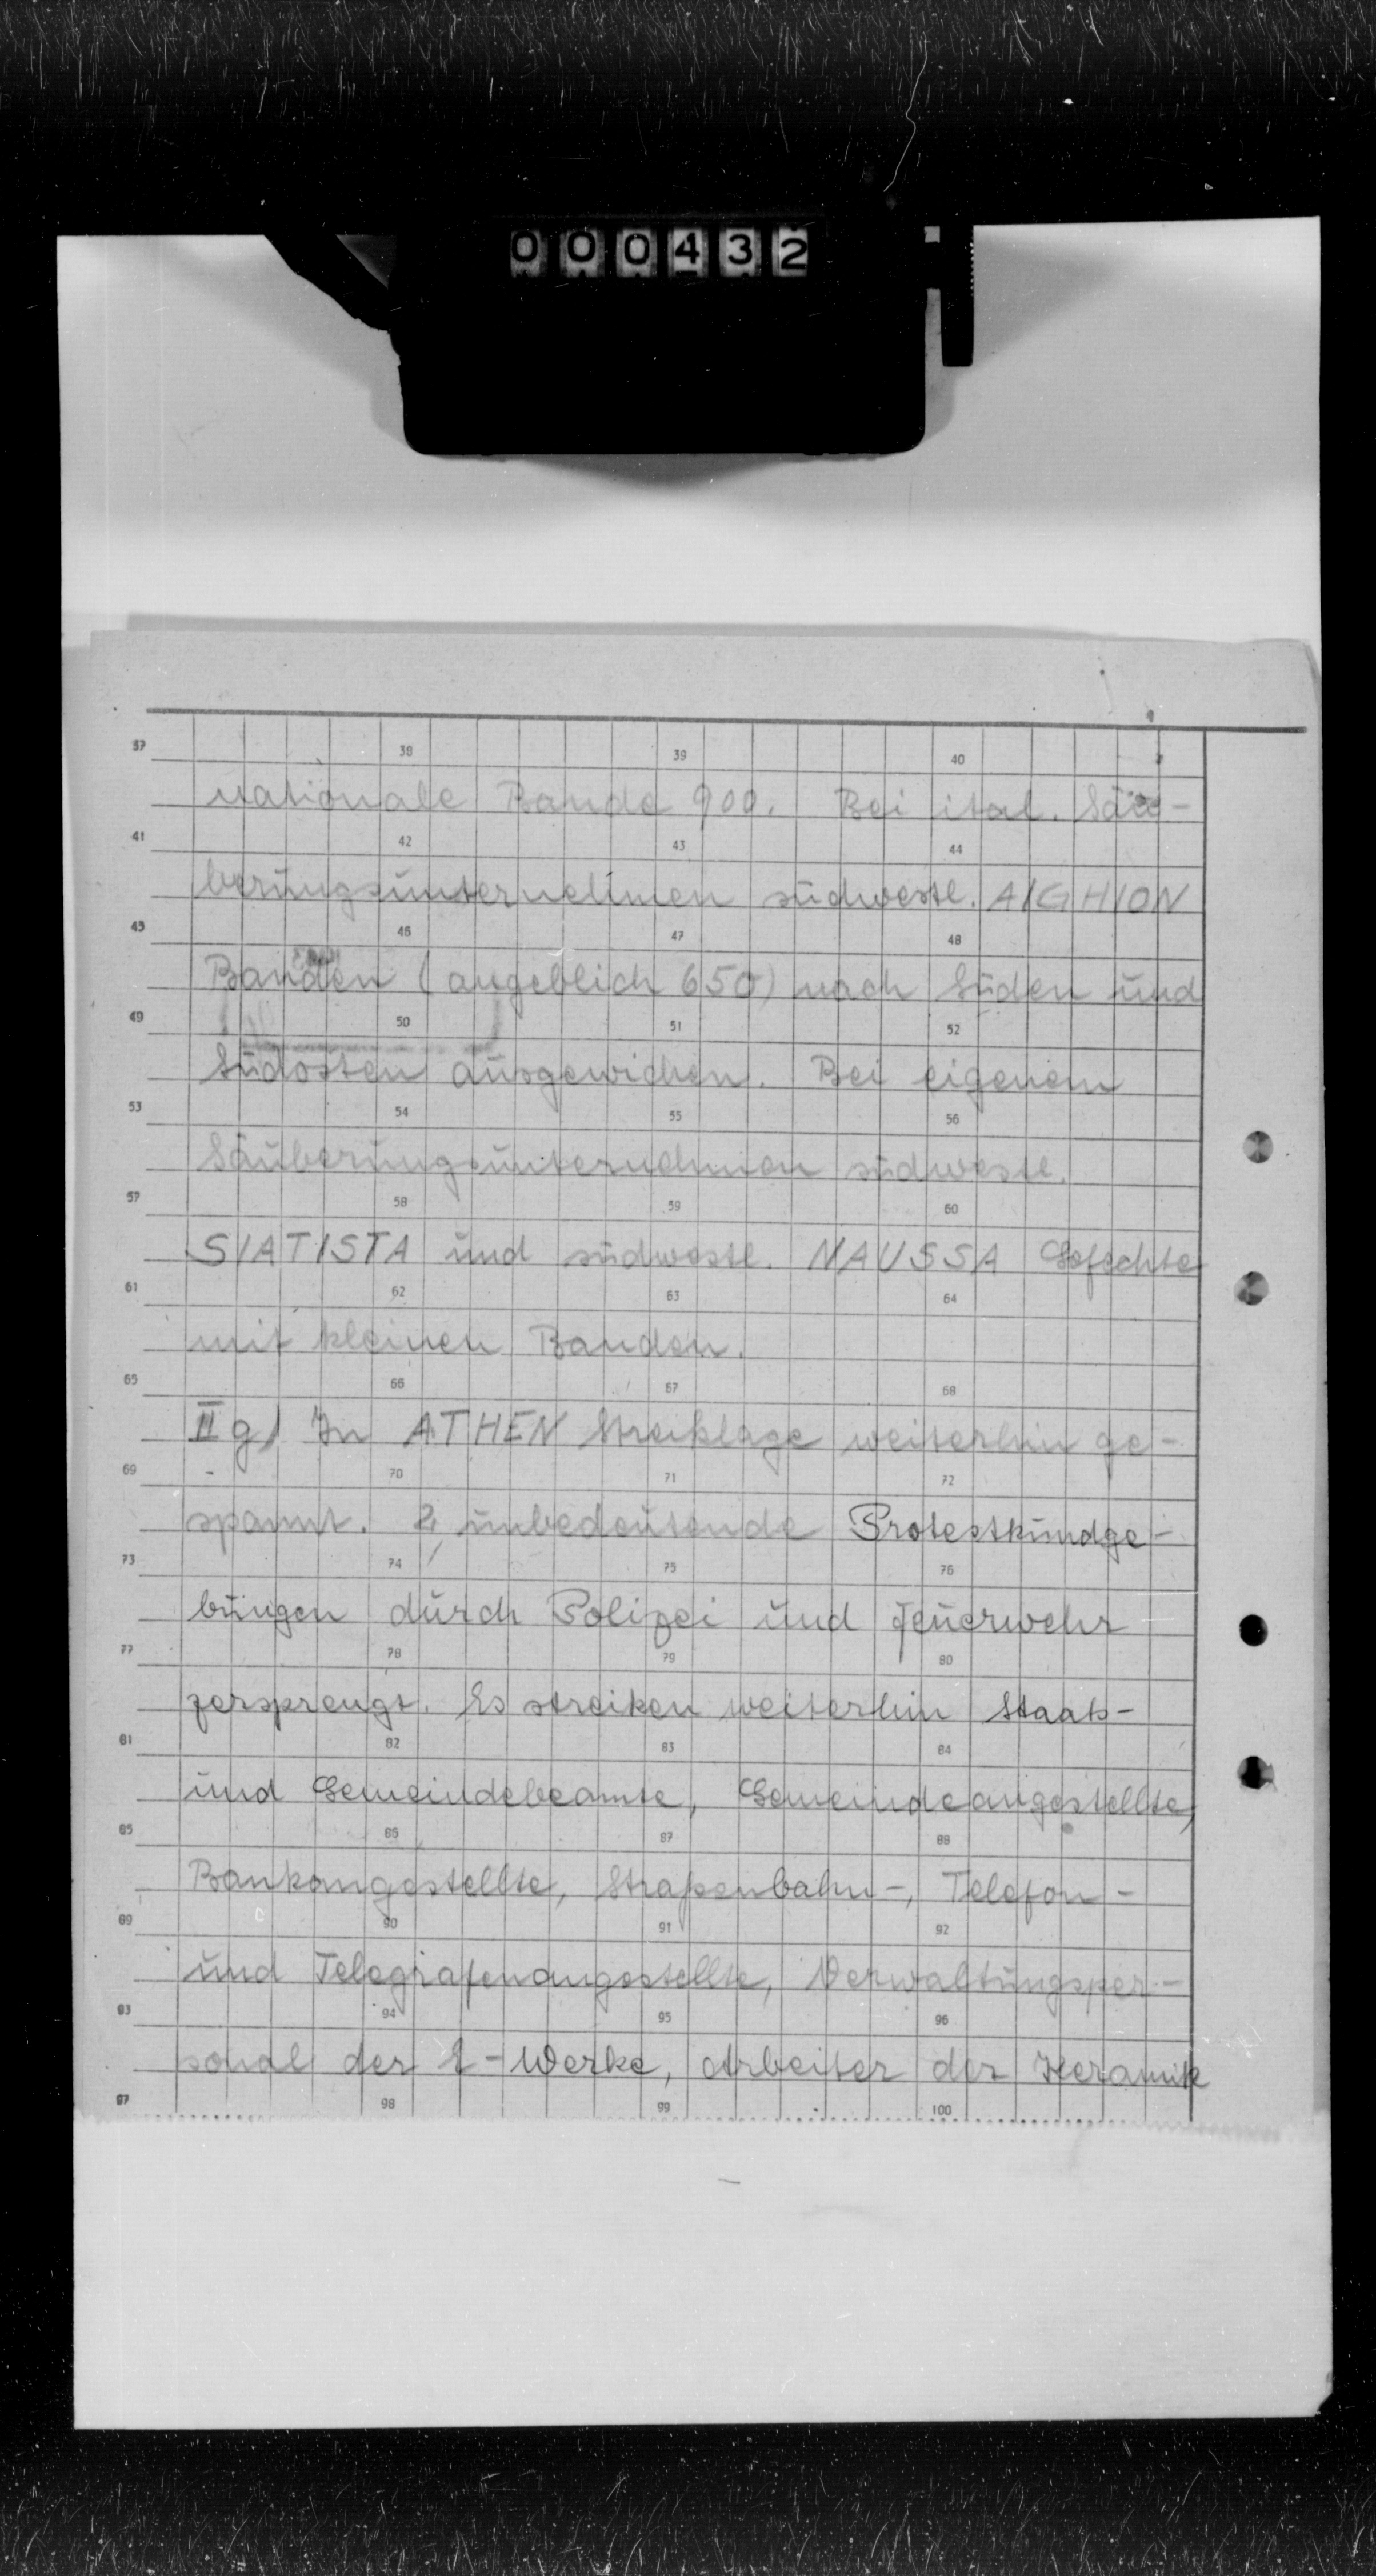 000432
37 38 39 40
nationale Bande 900. Bei ital. Säu-
41 42 43 44
berungsunternehmen südwestl. AIGHION
45 46 47 48
Banden (angeblich 650) nach Süden und
49 50 51 52
Südosten ausgewichen. Bei eigenem
53 54 55 56
Säuberungsunternehmen südwestl.
57 58 59 60
SIATISTA und südwestl. NAUSSA Gefechte
61 62 63 64
mit kleinen Banden.
65 66 67 68
II g) In ATHEN Streiklage weiterhin ge-
69 70 71 72
spannt. 2 unbedeutende Protestkundge-
73 74 75 76
bungen durch Polizei und Feuerwehr
77 78 79 80
zersprengt. Es streiken weiterhin Staats-
81 82 83 84
und Gemeindebeamte, Gemeindeangestellte,
85 86 87 88
Bankangestellte, Straßenbahn-, Telefon-
89 90 91 92
und Telegrafenangestellte, Verwaltungsper-
93 94 95 96
sonal der E-Werke, Arbeiter der Keramik
97 98 99 100